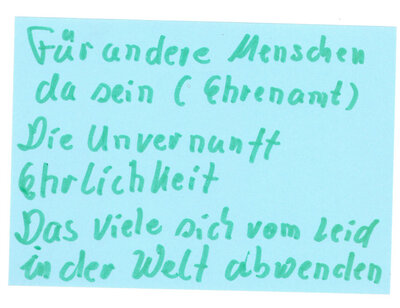 Für andere Menschen
da sein (Ehrenamt)
Die Unvernunft
Ehrlichkeit
Das viele sich vom Leid
in der Welt abwenden